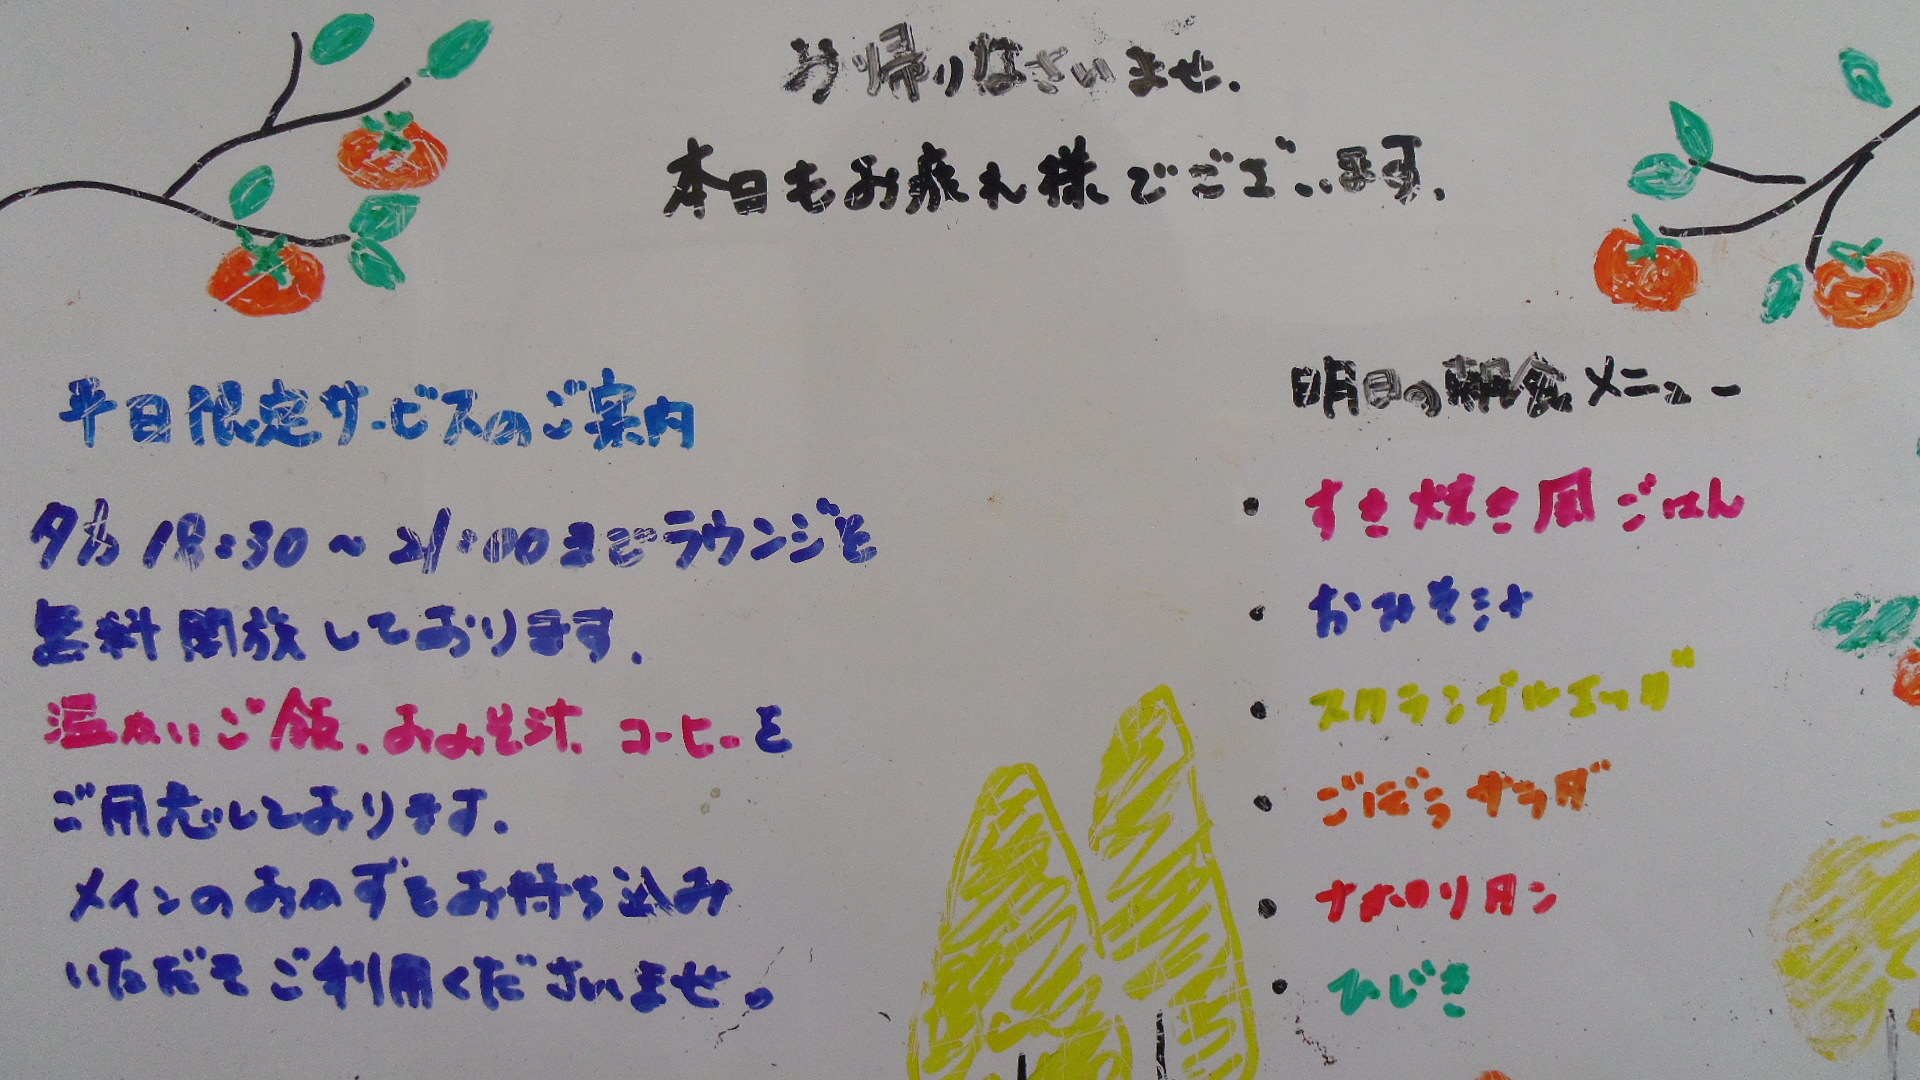 お帰りなさいませ.
本日もお疲れ様でございます.
平日限定サービスのご案内
夕方18:30～21:00までラウンジを
無料開放しております.
温かいご飯、おみそ汁、コーヒーを
ご用意しております.
メインのおかずをお持ち込み
いただきご利用くださいませ。
明日の朝食メニュー
・すき焼き風ごはん
・おみそ汁
・スクランブルエッグ
・ごぼうサラダ
・ナポリタン
・ひじき